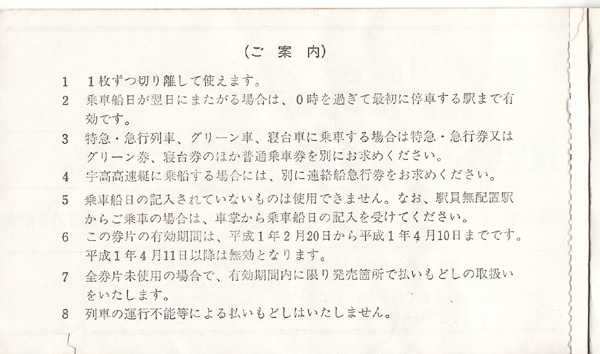 (ご案内)
1 1枚ずつ切り離して使えます。
2 乗車船日が翌日にまたがる場合は、0時を過ぎて最初に停車する駅まで有
効です。
3 特急・急行列車、グリーン車、寝台車に乗車する場合は特急・急行券又は
グリーン券、寝台券のほか普通乗車券を別にお求めください。
4 宇高高速艇に乗船する場合には、別に連絡船急行券をお求めください。
5 乗車船日の記入されていないものは使用できません。なお、駅員無配置駅
からご乗車の場合は、車掌から乗車船日の記入を受けてください。
6 この券片の有効期間は、平成1年2月20日から平成1年4月10日までです。
平成1年4月11日以降は無効となります。
7 全券片未使用の場合で、有効期間内に限り発売箇所で払いもどしの取扱い
をいたします。
8 列車の運行不能等による払いもどしはいたしません。